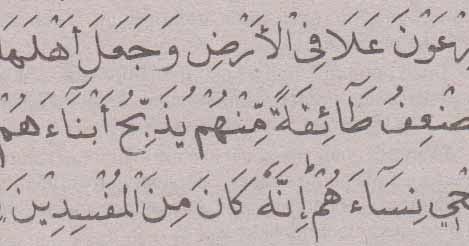 رْعَوْنَ عَلَا فِى الْأَرْضِ وَجَعَلَ أَهْلَهَا
ضْعِفُ طَآئِفَةً مِّنْهُمْ يُذَبِّحُ أَبْنَآءَهُمْ
حْىِ نِسَآءَهُمْ إِنَّهُ كَانَ مِنَ الْمُفْسِدِينَ